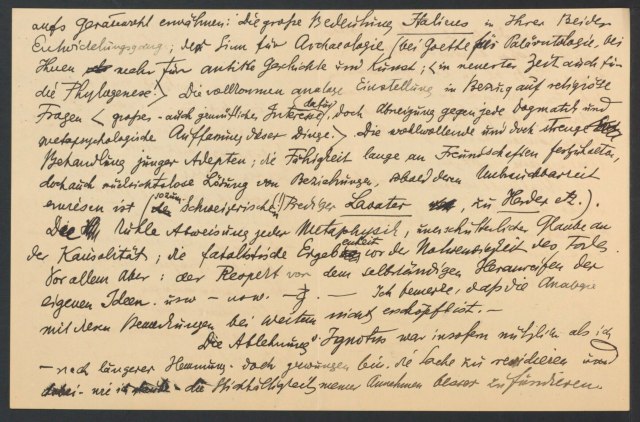 aufs geratewohl erwähnen: die große Bedeutung Italiens in Ihrer Beider
Entwickelungsgang; der Sinn für Archaeologie (bei Goethe für Paläontologie, bei
Ihnen mehr für antike Geschichte und Kunst; (in neuerer Zeit auch für
die Phylogenese.) Die vollkommen analoge Einstellung in Bezug auf religiöse
Fragen (großes - auch gemütliches Interesse dafür, doch Abneigung gegen jede Dogmatik und
metapsychologische Auffassung dieser Dinge.) Die wohlwollende und doch strenge
Behandlung junger Adepten; die Fähigkeit lange an Freundschaften festzuhalten,
doch auch rücksichtslose Lösung von Beziehungen, sobald deren Unbrauchbarkeit
erwiesen ist (sozus. Schweizerischen (!) Prediger Lavater zu Herder etz.).
Die kühle Abweisung jeder Metaphysik, unerschütterlicher Glaube an
der Kausalität; die fatalistische Ergebenheit vor der Notwendigkeit des Todes
Vor allem aber: der Respekt vor dem selbständigen Heranreifen der
eigenen Ideen. usw - usw. — Ich bemerke, daß die Analogie
mit deren Bemerkungen bei weitem nicht erschöpft ist. —
Die Ablehnung Ignotus war insofern nützlich als ich
— nach längerer Hemmung - doch gezwungen bin, die Sache zu revidieren und
die Stichhältigkeit meiner Annahmen besser zu fundieren.